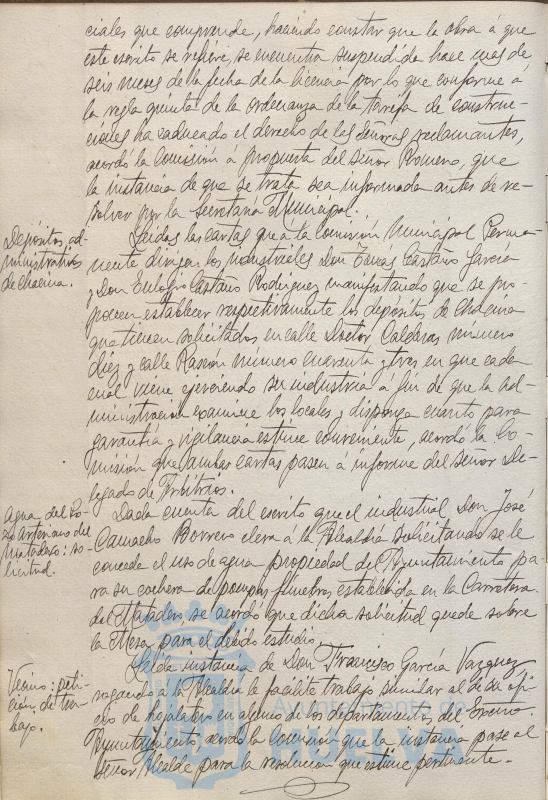 ciales que comprende, haciendo constar que la obra á que
este escrito se refiere, se encuentra suspendida hace mas de
seis meses de la fecha de la licencia por lo que conforme a
la regla quinta de la Ordenanza de la tarifa de construc-
ciones ha caducado el derecho de las Señoras reclamantes,
acordó la Comisión á propuesta del Señor Romero, que
la instancia de que se trata sea informada antes de re-
solver por la Secretaría Municipal.
Depósitos ad-
ministrativos
de Chacina.
Leidas las cartas que a la Comisión Municipal Perma-
nente dirigen los industriales Don Tomás Castaño Garcia
y Don Eulogio Castaño Rodriguez manifestando que se pro-
ponen establecer respectivamente los depósitos de Chacina
que tienen solicitados en calle Doctor Calderas número
diez y calle Rascón número cuarenta y tres en que cada
cual viene ejerciendo su industria a fin de que la ad-
ministración examine los locales y disponga cuanto para
garantía y vigilancia estime conveniente, acordó la Co-
misión que ambas cartas pasen á informe del señor De-
legado de Arbitrios.
Agua del Po-
zo Artesiano del
Matadero: so-
licitud.
Dada cuenta del escrito que el industrial Don José
Camacho Borrero eleva á la Alcaldía solicitando se le
conceda el uso de agua propiedad del Ayuntamiento pa-
ra su cochera de pompas fúnebres establecida en la Carretera
del Matadero, se acordó que dicha solicitud quede sobre
la Mesa para el debido estudio.
Vecino: peti-
ción de tra-
bajo.
Leida instancia de Don Francisco García Vazquez
rogando a la Alcaldia le facilite trabajo similar al de su ofi-
cio de hojalatero en alguno de los departamentos del Excmo.
Ayuntamiento, acordó la Comisión que la instancia pase al
Señor Alcalde para la resolución que estime pertinente.-
Ayuntamiento de
HUELVA